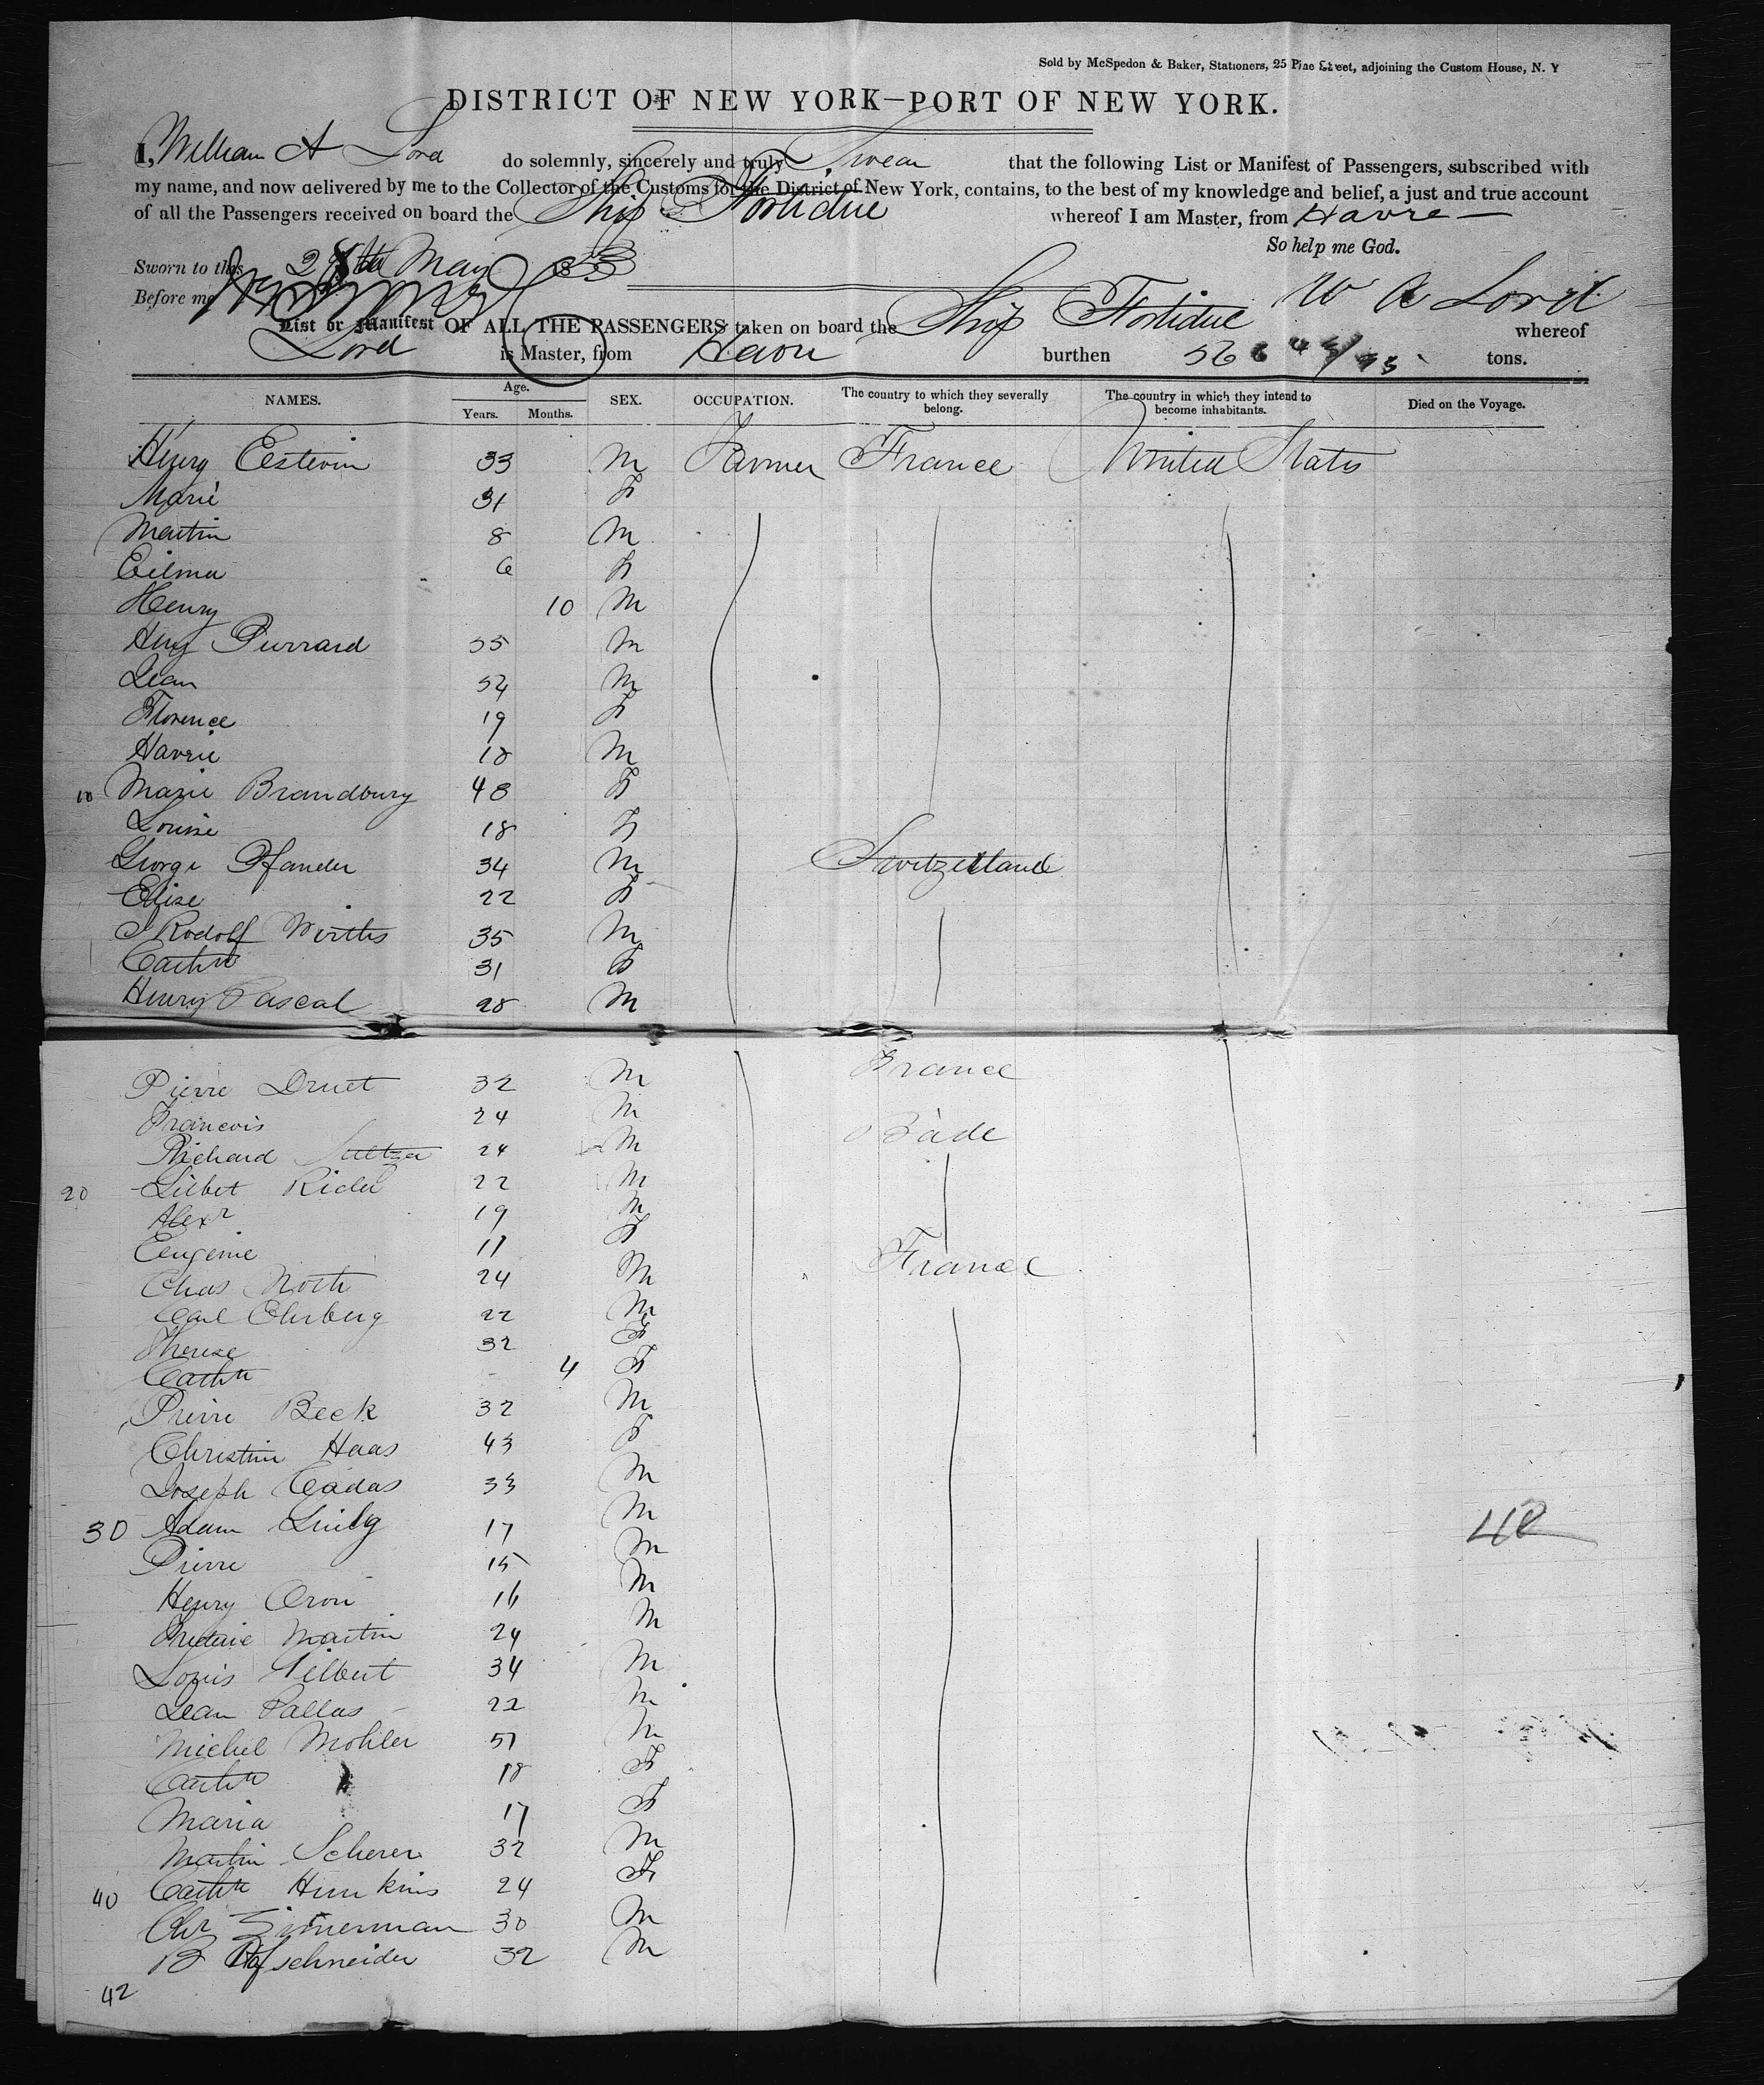 Sold by McSpedon & Baker, Stationers, 25 Pine Street, adjoining the Custom House, N. Y
DISTRICT OF NEW YORK—PORT OF NEW YORK.
I, William A Lord do solemnly, sincerely and truly Swear that the following List or Manifest of Passengers, subscribed with
my name, and now delivered by me to the Collector of the Customs for the District of New York, contains, to the best of my knowledge and belief, a just and true account
of all the Passengers received on board the Ship Fortidue whereof I am Master, from Havre
So help me God.
Sworn to this 28th May 53
Before me W A Lord
List or Manifest OF ALL THE PASSENGERS taken on board the Ship Fortidue whereof
Lord is Master, from Havre burthen 566 45/95 tons.
NAMES. Age. Years. Months. SEX. OCCUPATION. The country to which they severally belong. The country in which they intend to become inhabitants. Died on the Voyage.
Henry Eestivin 33 M Farmer France United States
Marie 31 F
Martin 8 M
Eilma 6 F
Henry 10 M
Henry Purrard 55 M
Jean 54 M
Florence 19 F
Havrie 18 M
10 Marie Brandbury 48 F
Louise 18 F
George Pfander 34 M Switzerland
Elise 22 F
J Rodolf Wirths 35 M
Cathn 31 F
Henry Pascal 28 M
Pierre Druet 32 M France
Francois 24 M
Richard Sultzer 24 M Bade
20 Lilbet Ridel 22 M
Alexr 19 M
Eeugenie 11 F
Chas North 24 M France
Carl Ehrberg 22 M
Therese 32 F
Cathn 4 F
Pierre Beck 32 M
Christine Haas 43 F
Joseph Cadas 33 M
30 Adam 17 M 42
Pierre 15 M
Henry Oron 16 M
Martin 24 M
Louis Vilbert 34 M
Jean Pallas 22 M
Michel Mohler 51 M
Cathn 18 F
Maria 17 F
Martin Scherer 32 M
40 Cathn Hunkins 24 F
Chr Zimerman 30 M
B Hofschneider 32 M
42